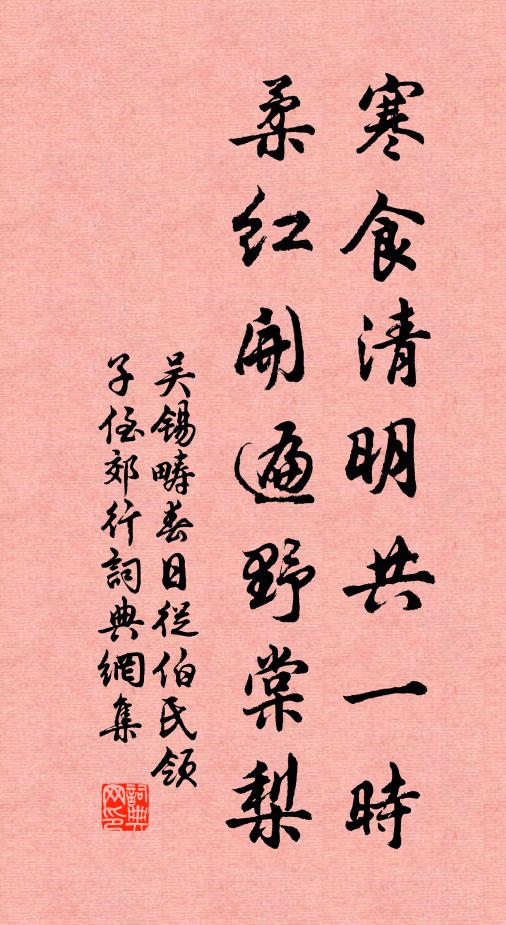 寒食清明共一時
柔紅開遍野棠梨
吳錫疇春日從伯氏領
子侄郊行詞典網集
詞典
网印